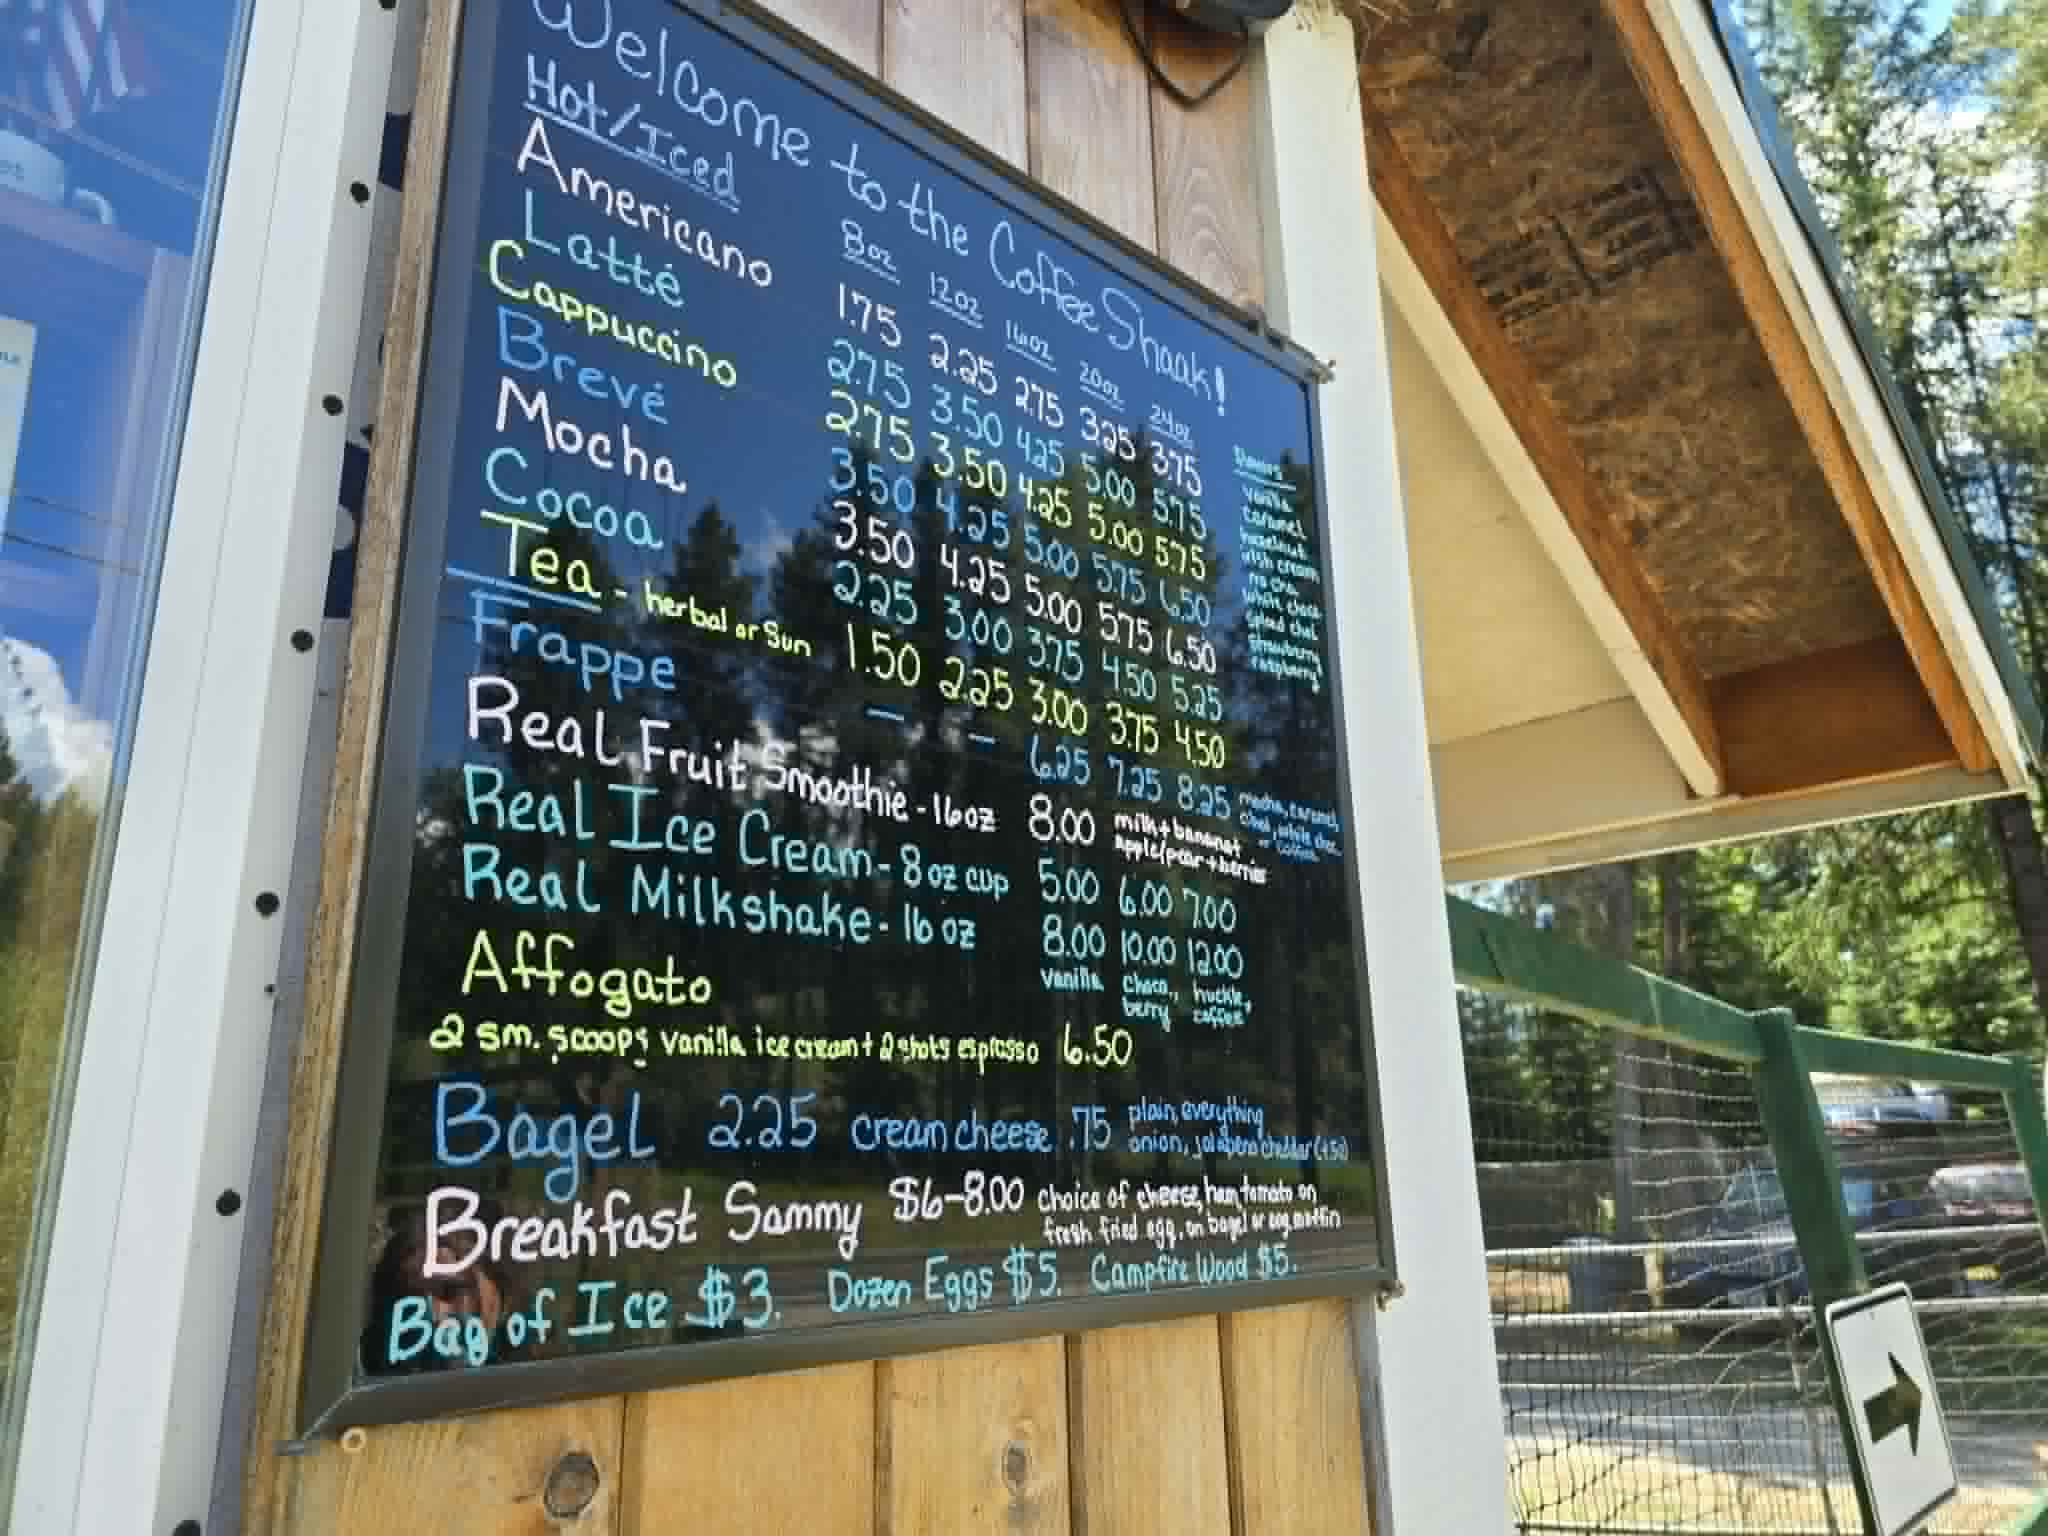 Welcome to the Coffee Shaak!
Hot/Iced 8oz 12oz 16oz 20oz 24oz
Americano 1.75 2.25 2.75 3.25 3.75
Latté 2.75 3.50 4.25 5.00 5.75
Cappuccino 2.75 3.50 4.25 5.00 5.75
Brevé 3.50 4.25 5.00 5.75 6.50
Mocha 3.50 4.25 5.00 5.75 6.50
Cocoa 2.25 3.00 3.75 4.50 5.25
Tea - herbal or Sun 1.50 2.25 3.00 3.75 4.50
Frappe — — 6.25 7.25 8.25
mocha, caramel,
chai, white choc.
or coffee
Flavors
vanilla
caramel
hazelnut
irish cream
mocha
white choc
strawberry
raspberry
Real Fruit Smoothie - 16oz 8.00
milk + banana +
apple/pear + berries
Real Ice Cream - 8oz cup 5.00 6.00 7.00
Real Milkshake - 16oz 8.00 10.00 12.00
vanilla choco., huckle,
berry coffee
Affogato
2 sm. scoops vanilla ice cream + 2 shots espresso 6.50
Bagel 2.25 cream cheese .75
plain, everything
onion, jalapeno cheddar (+.50)
Breakfast Sammy $6-8.00
choice of cheese, ham, tomato on
fresh fried egg. on bagel or eng. muffin
Bag of Ice $3. Dozen Eggs $5. Campfire Wood $5.